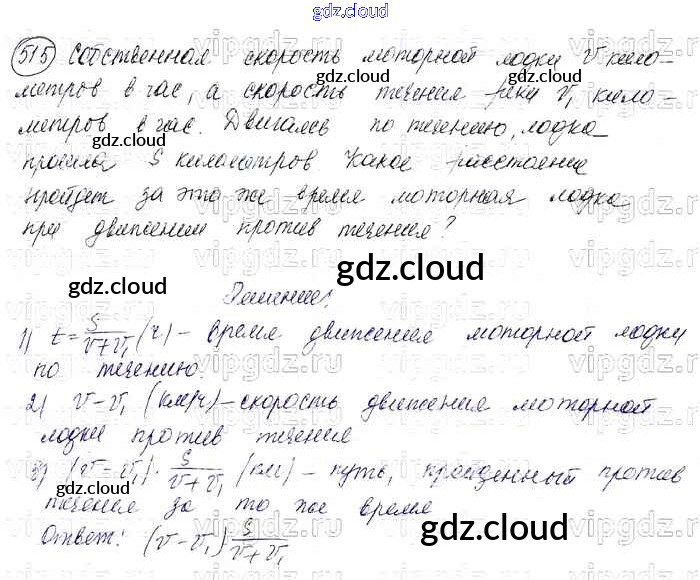 gdz.cloud
515 Собственная скорость моторной лодки V кило-
метров в час, а скорость течения реки V₁ кило-
метров в час. Двигаясь по течению, лодка
прошла S километров Какое расстояние
пройдет за это же время моторная лодка
при движении против течения?
Решение:
1) t = S/(V+V₁) (ч) – время движения моторной лодки
по течению.
2) V – V₁ (км/ч) – скорость движения моторной
лодки против течения
3) (V – V₁) · S/(V+V₁) (км) – путь, пройденный против
течения за то же время
Ответ: (V – V₁) S/(V+V₁)